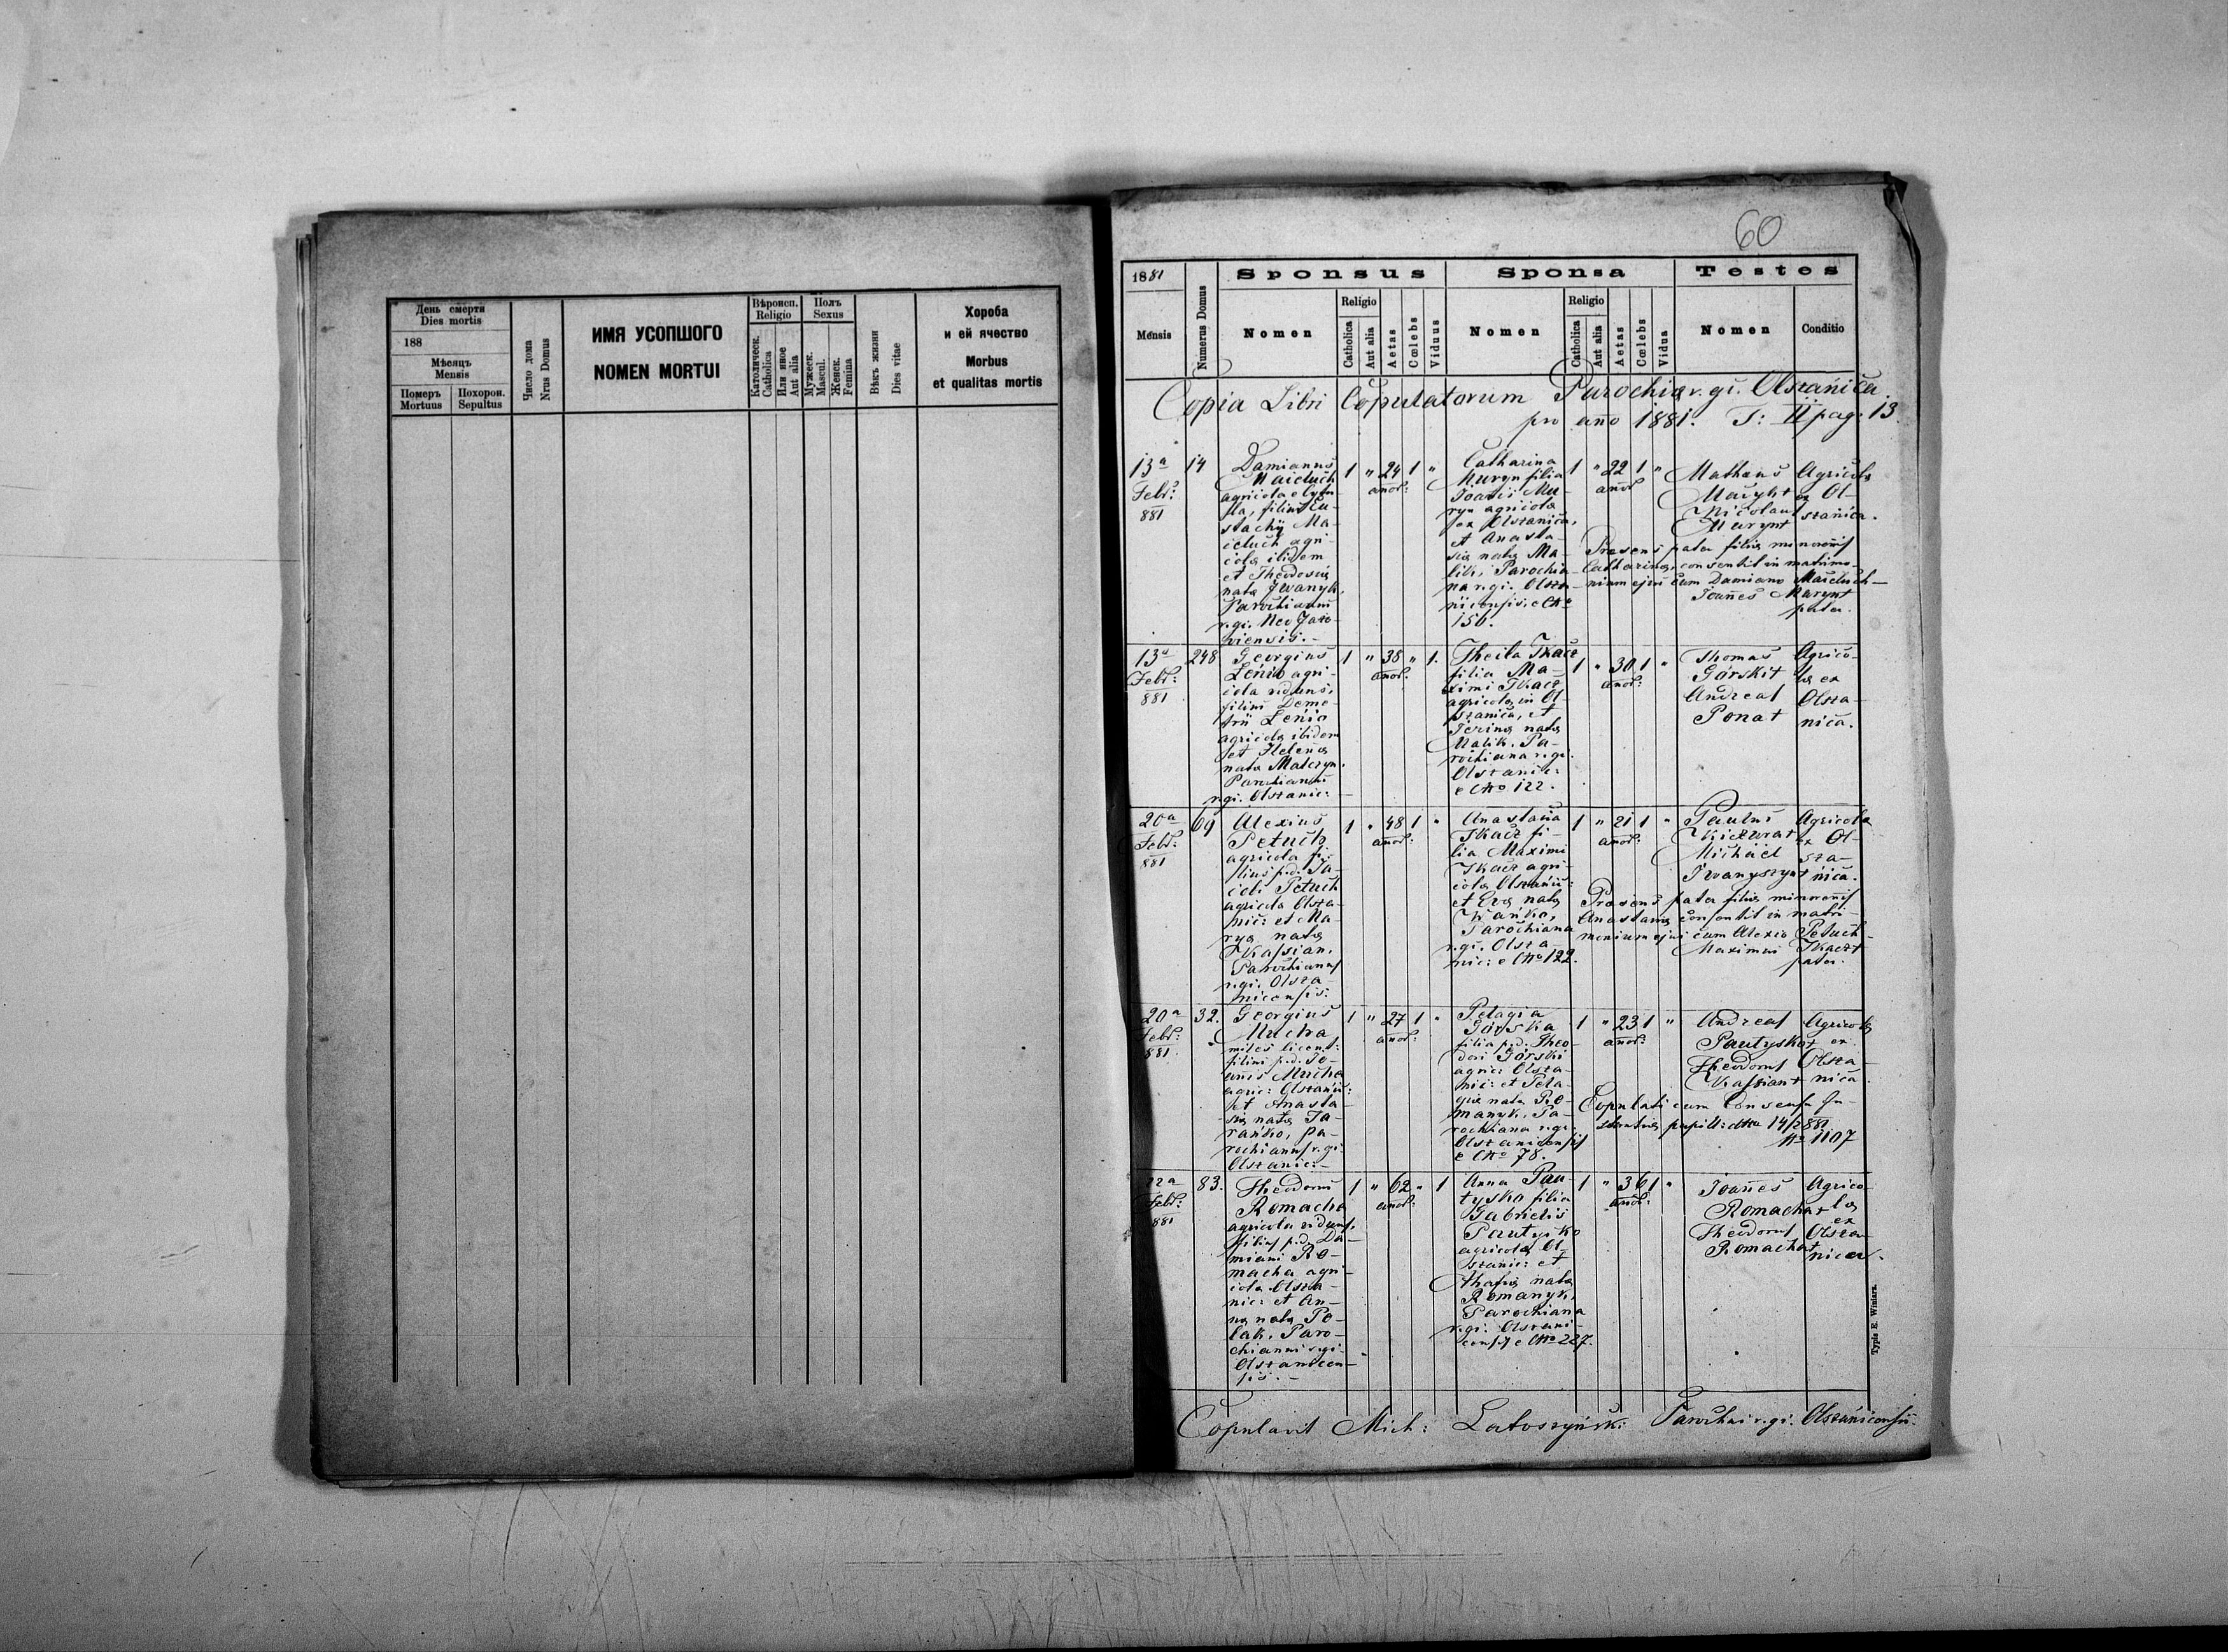 День смерти
Dies mortis
188
Мѣсяцъ
Mensis
Померъ
Mortuus
Похорон.
Sepultus
Число дома
Nrus Domus
ИМЯ УСОПШОГО
NOMEN MORTUI
Вѣроисп.
Religio
Католическ.
Catholica
Или иное
Aut alia
Полъ
Sexus
Мужеск.
Mascul.
Женск.
Femina
Вѣкъ жизни
Dies vitae
Хороба
и ей ячество
Morbus
et qualitas mortis
60
1881
Mensis
Numerus Domus
Sponsus
Nomen
Religio
Catholica
Aut alia
Aetas
Cœlebs
Viduus
Sponsa
Nomen
Religio
Catholica
Aut alia
Aetas
Cœlebs
Vidua
Testes
Nomen
Conditio
Copia Libri Copulatorum Parochiæ r. gr. Olszanica
pro año 1881. T: II pag: 13
13a
Febr:
881
14
Damianus
Maciluch
agricola
filius Eu-
stachij Ma-
ciluch agri-
colæ ibidem
et Theodosiæ
natæ Iwanyk,
Parochianus
r. gr. Neo Jazo-
viensis. –
1 " 24 1 "
anor:
Catharina
Muryn filia
Joanis Mu-
ryn agricolæ
ex Olszanica,
et Anasta-
siæ natæ Ma-
lik, Parochia-
na r. gr. Olsza-
nicensis. e CNo
156.
1 " 22 1 "
anor
Matheus
Muryn +
Nicolaus
Muryn +
Agricolæ
ex Ol-
szanica.
Præsens pater filiæ minorenis
Catharinæ, consentit in matrimo-
nium ejus cum Damiano Maciluch –
Joañes Muryn +
pater.
13a
Febr:
881
248
Georgius
Lenio agri-
cola viduus,
filius Deme-
trii Lenio
agricolæ ibidem
et Helenæ
natæ Matczyn.
Parochianus
r. gr. Olszanic:
1 " 38 " 1.
anor:
Thecla Tkacz
filia Ma-
ximi Tkacz
agricolæ in Ol-
szanica, et
Irinæ natæ
Malik. Pa-
rochiana r. gr.
Olszanic:
e CNo 122.
1 " 30 1 "
anor:
Thomas
Górski +
Andreas
Ponat
Agrico-
læ ex
Olsza-
nica.
20a
Febr:
881
69
Alexius
Petuch
agricola fi-
lius p.d. Ja-
cobi Petuch
agricolæ Olsza-
nic: et Ma-
ryæ natæ
Kassian.
Parochianus
r. gr. Olsza-
nicensis.
1 " 48 1 "
anor:
Anastasia
Tkacz fi-
lia Maximi
Tkacz agri-
colæ Olszanic:
et Evæ natæ
Wańko,
Parochiana
r. gr. Olsza-
nic: e CNo 122.
1 " 21 1 "
anor:
Paulus
Michael
Iwanyszyn +
Agricolæ
ex Ol-
sza-
nica.
Præsens pater filiæ minorenis
Anastasiæ consentit in matri-
monium ejus cum Alexio Petuch –
Maximus Tkacz +
pater.
20a
Febr:
881
32.
Georgius
Mucha
miles licent:
filius p.d. Jo-
anis Mucha
agric: Olszanic:
et Anasta-
siæ natæ Ta-
rańko, pa-
rochianus r. gr.
Olszanic: –
1 " 27 1 "
anor:
Pelagia
Górska
filia p.d. Theo-
dori Górski
agric: Olsza-
nic: et Pela-
giæ natæ Ro-
manyk. Pa-
rochiana r. gr.
Olszanicensis
e CNo 78.
1 " 23 1 "
anor:
Andreas
Pautysko +
Theodorus
Kassian +
Agricolæ
ex
Olsza-
nica
Copulati cum Consensu In-
stantiæ pupill: dto 14/2 881
No 1107
22a
Febr:
881
83.
Theodorus
Romacha
agricola viduus.
filius p.d. Da-
miani Ro-
macha agri-
colæ Olsza-
nic: et An-
næ natæ Po-
lak. Paro-
chianus r. gr.
Olszanicen-
sis. –
1 " 62 " 1
anor:
Anna Pau-
tysko filia
Gabrielis
Pautysko
agricolæ Ol-
szanic: et
natæ
Romanyk,
Parochiana
r. gr. Olszani-
censis e CNo 227.
1 " 36 1 "
anor:
Joañes
Romacha +
Theodorus
Romacha +
Agrico-
læ
ex
Olsza-
nica.
Typis E. Winiarz.
Copulavit Mich: Łatoszyński Parochus r. gr. Olszanicensis.